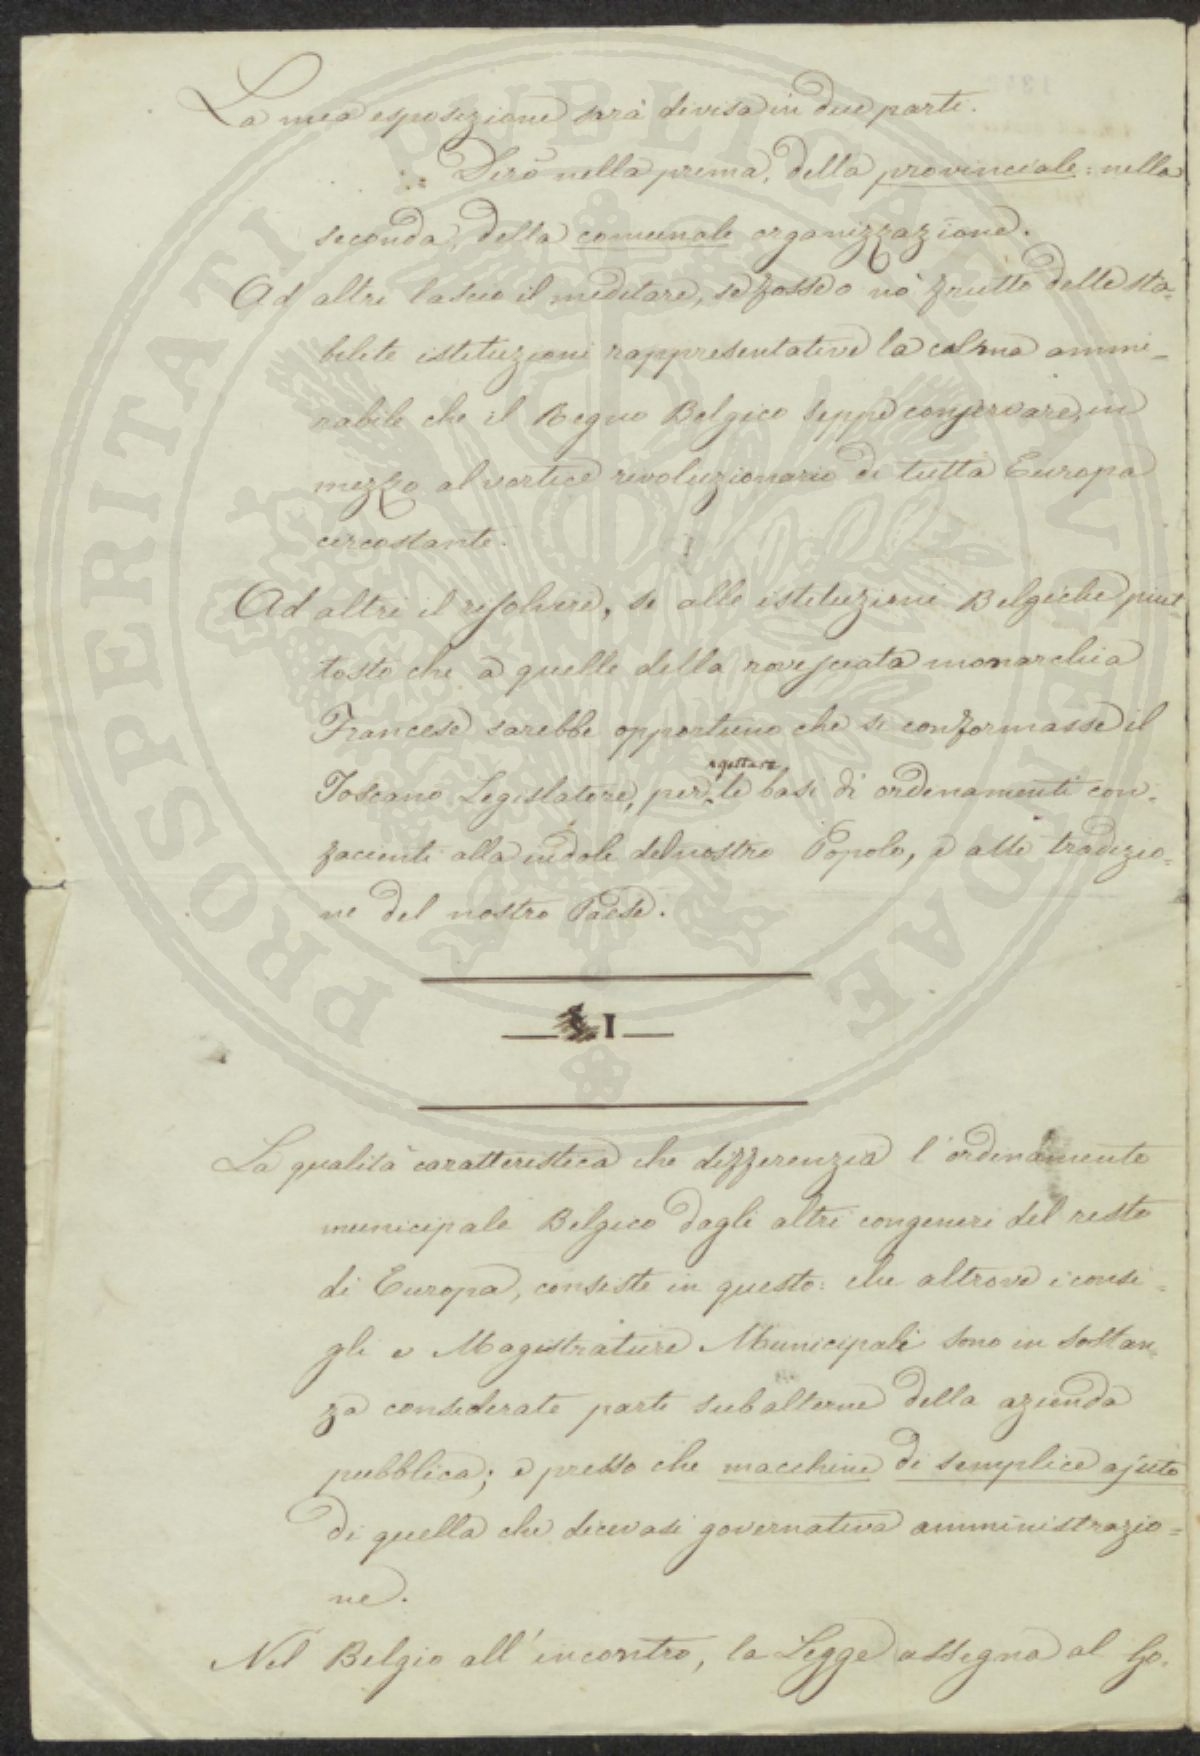 La mia esposizione sarà divisa in due parti.
Dirò nella prima, della provinciale: nella
seconda, della comunale organizzazione.
Ad altri lascio il meditare, se fosse o nò frutto delle sta-
bilite istituzioni rappresentative la calma ammi-
rabile che il Regno Belgico seppe conservare, in
mezzo al vortice rivoluzionario di tutta Europa
circostante.
Ad altri il risolvere, se alle istituzioni Belgiche piut-
tosto che a quelle della rovesciata monarchia
Francese sarebbe opportuno che si conformasse il
Toscano Legislatore, per gettare le basi di ordinamenti con-
facienti alla indole del nostro Popolo, e alle tradizio-
ne del nostro Paese.
I
La qualità caratteristica che differenzia l'ordinamento
municipale Belgico dagli altri congeneri del resto
di Europa, consiste in questo: che altrove i consi-
gli e Magistrature Municipali sono in sostan-
za considerate parti subalterne della azienda
pubblica; e presso che macchine di semplice ajuto
di quella che dicevasi governativa amministrazio-
ne.
Nel Belgio all'incontro, la Legge assegna al Go-
PROSPERITATI PUBLICAE AUGENDAE